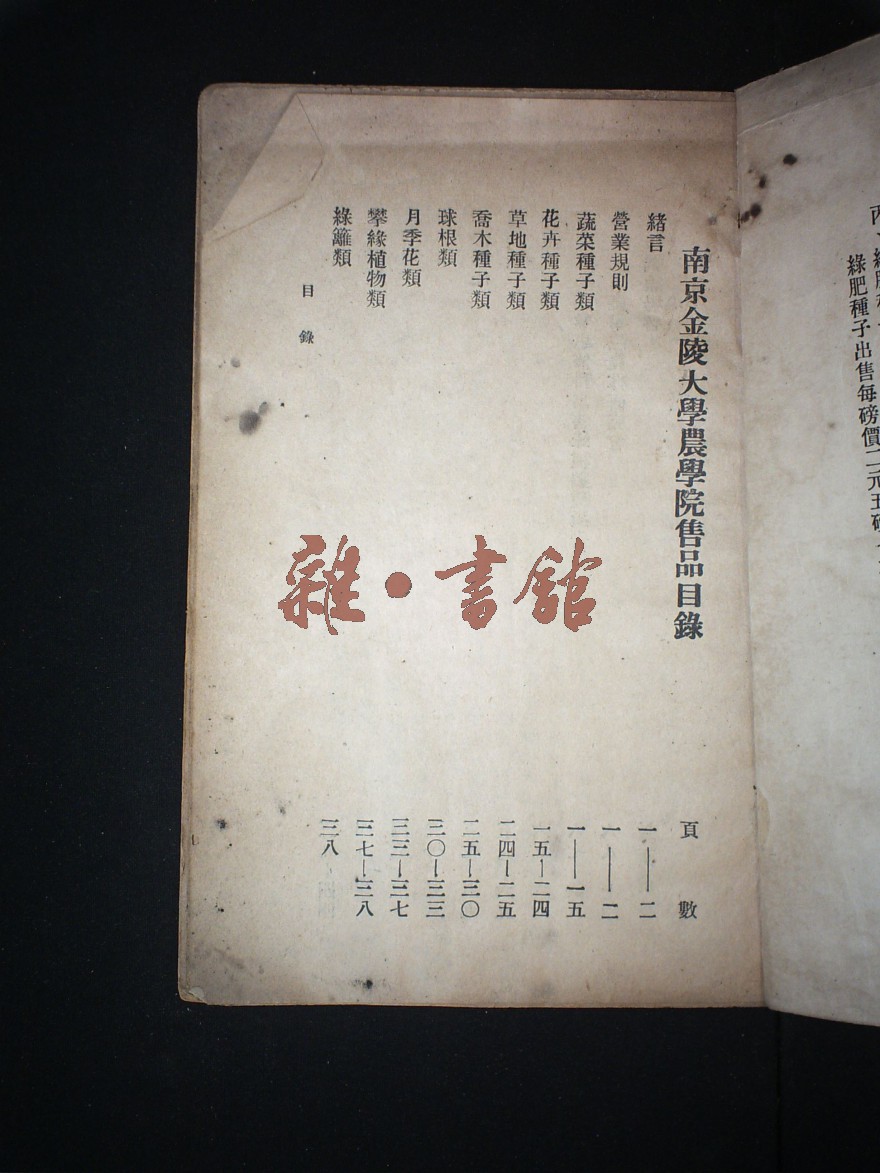 綠肥種子出售每磅價二元五
南京金陵大學農學院售品目錄
頁數
緒言 一——二
營業規則 一——二
蔬菜種子類 一——一五
花卉種子類 一五—二四
草地種子類 二四—二五
喬木種子類 二五—三〇
球根類 三〇—三三
月季花類 三三—三七
攀緣植物類 三七—三八
綠籬類 三八
目錄
雜・書館